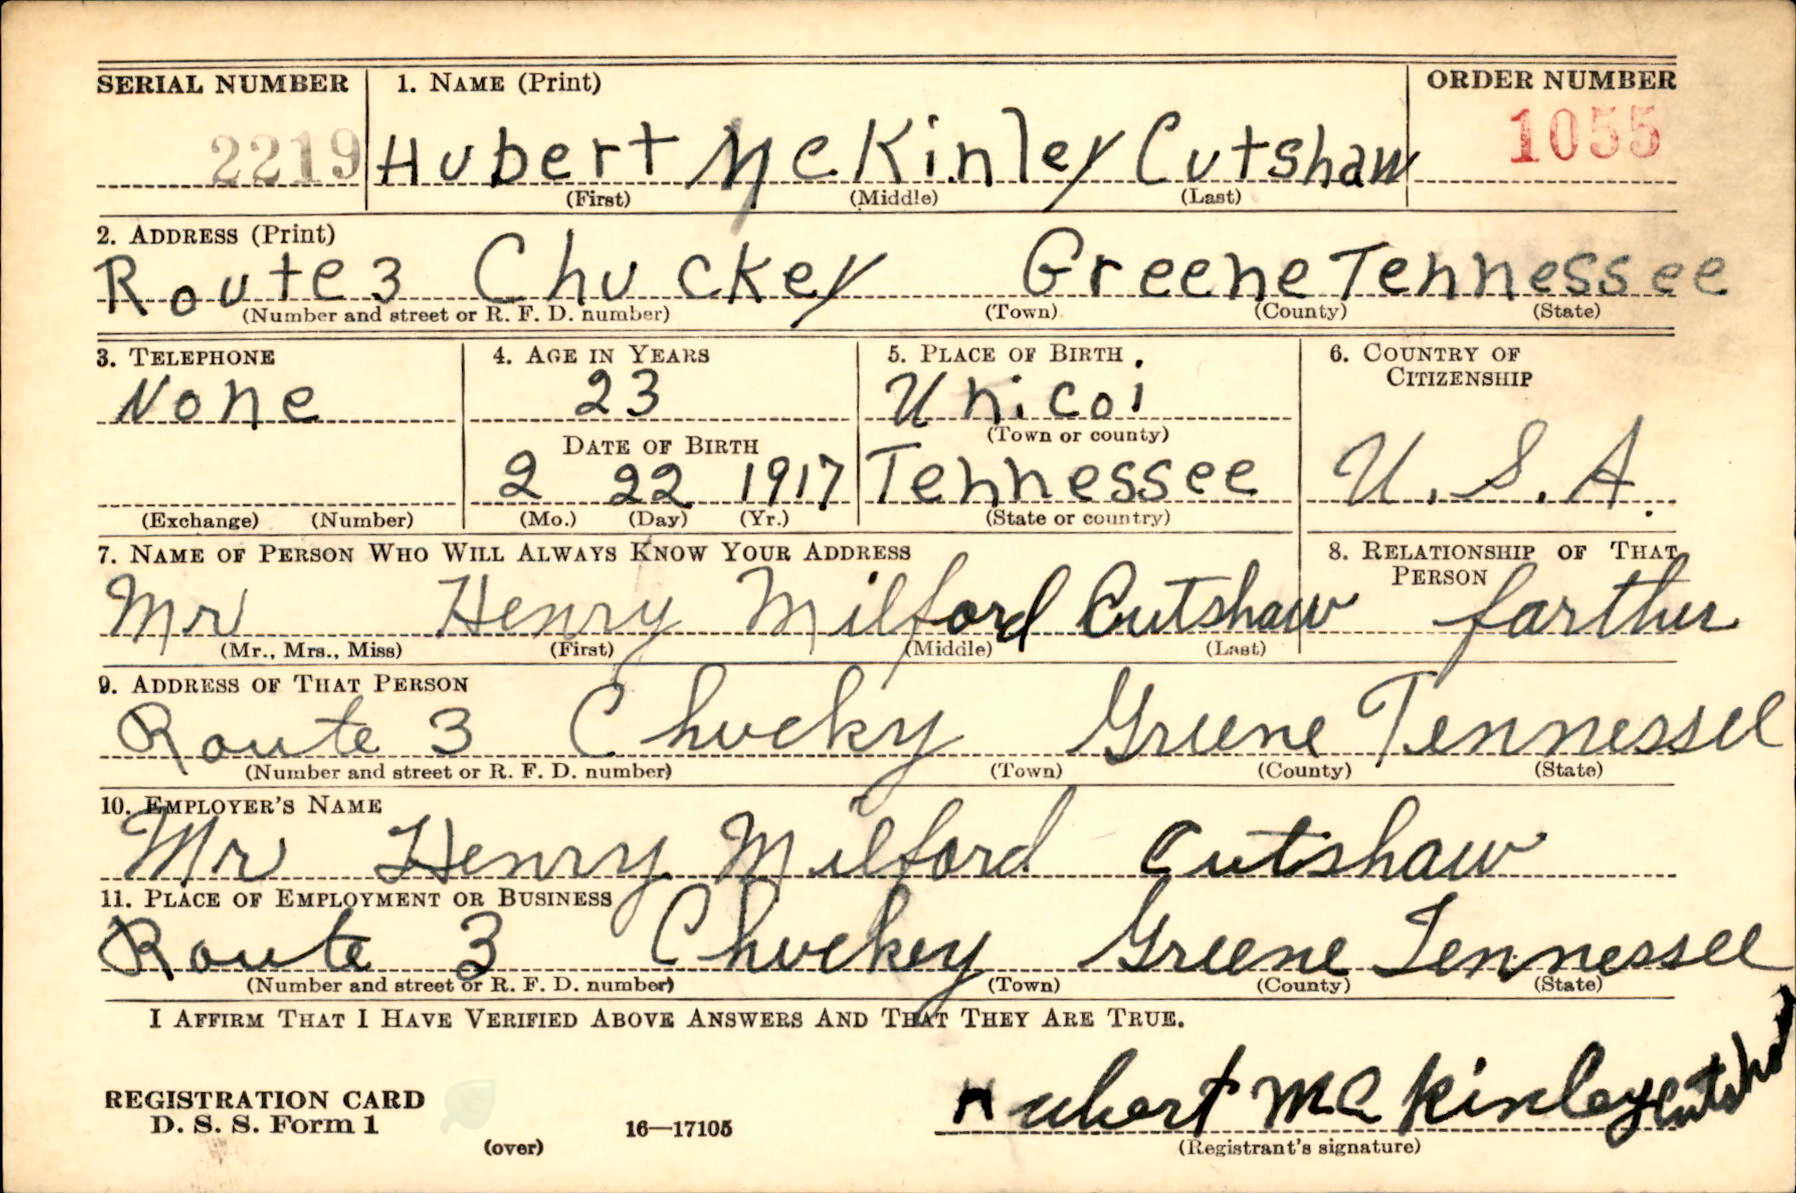 SERIAL NUMBER 1. NAME (Print) ORDER NUMBER
2219 Hubert McKinley Cutshaw 1055
(First) (Middle) (Last)
2. ADDRESS (Print)
Route 3 Chuckey Greene Tennessee
(Number and street or R. F. D. number) (Town) (County) (State)
3. TELEPHONE 4. AGE IN YEARS 5. PLACE OF BIRTH 6. COUNTRY OF
CITIZENSHIP
None 23 Unicoi
(Town or county)
DATE OF BIRTH
2 22 1917 Tennessee U. S. A.
(Exchange) (Number) (Mo.) (Day) (Yr.) (State or country)
7. NAME OF PERSON WHO WILL ALWAYS KNOW YOUR ADDRESS 8. RELATIONSHIP OF THAT
PERSON
Mr Henry Milford Cutshaw farther
(Mr., Mrs., Miss) (First) (Middle) (Last)
9. ADDRESS OF THAT PERSON
Route 3 Chucky Greene Tennessee
(Number and street or R. F. D. number) (Town) (County) (State)
10. EMPLOYER'S NAME
Mr Henry Milford Cutshaw
11. PLACE OF EMPLOYMENT OR BUSINESS
Route 3 Chuckey Greene Tennessee
(Number and street or R. F. D. number) (Town) (County) (State)
I AFFIRM THAT I HAVE VERIFIED ABOVE ANSWERS AND THAT THEY ARE TRUE.
Hubert McKinley Cutshaw
REGISTRATION CARD
D. S. S. Form 1 16—17105
(over) (Registrant's signature)